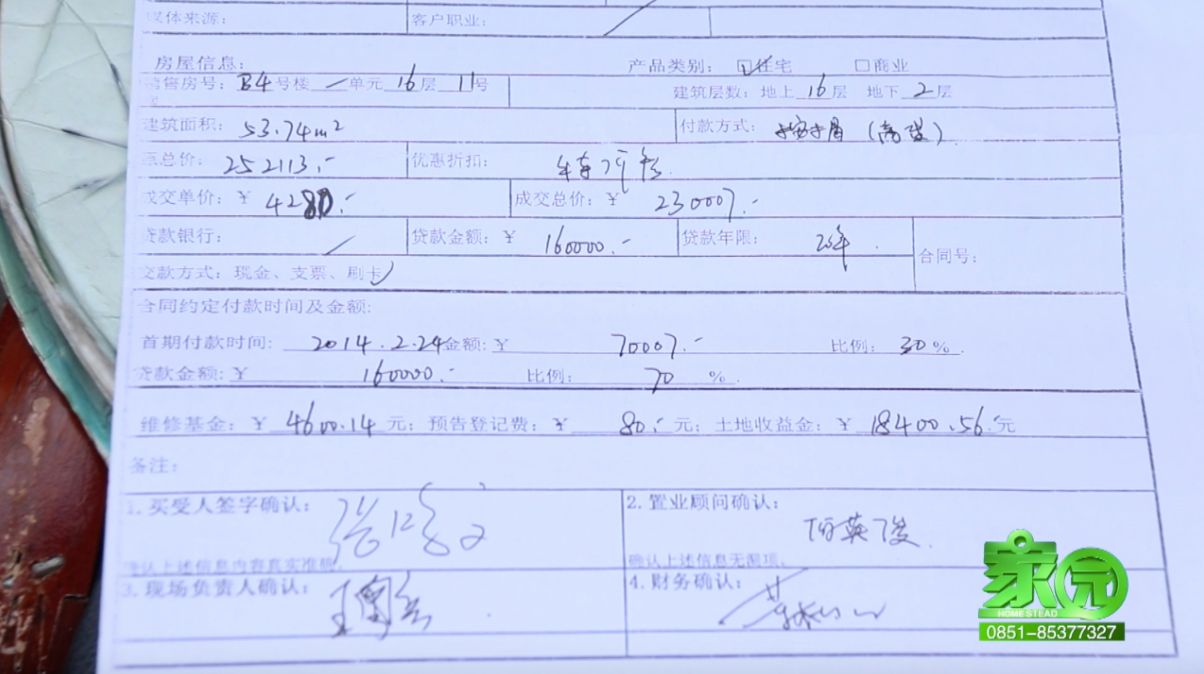 媒体来源: 客户职业:
房屋信息: 产品类别: 住宅 □商业
售房号: B4号楼 单元 16层 11号 建筑层数: 地上 16层 地下 2层
建筑面积: 53.74m² 付款方式:
总价: 252113.- 优惠折扣:
成交单价: ¥ 4280.- 成交总价: ¥ 230007.-
贷款银行: 贷款金额: ¥ 160000.- 贷款年限: 20年 合同号:
交款方式: 现金、支票、刷卡
合同约定付款时间及金额:
首期付款时间: 2014.2.24 金额: ¥ 70007.- 比例: 30%.
贷款金额: ¥ 160000.- 比例: 70 %.
维修基金: ¥ 4600.14 元; 预告登记费: ¥ 80.- 元; 土地收益金: ¥ 18400.56 元
备注:
1. 买受人签字确认: 2. 置业顾问确认:
确认上述信息内容真实准确. 确认上述信息无漏项.
3. 现场负责人确认: 4. 财务确认:
家园
HOMESTEAD
0851-85377327